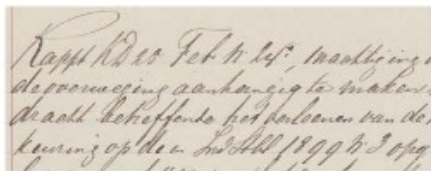 Rappt KD 25 Feb N 24, machtiging
de overweging aanhangig te maken
dracht betreffende het verleenen van de
keuring op de in Ind Stbl 1899 N 3